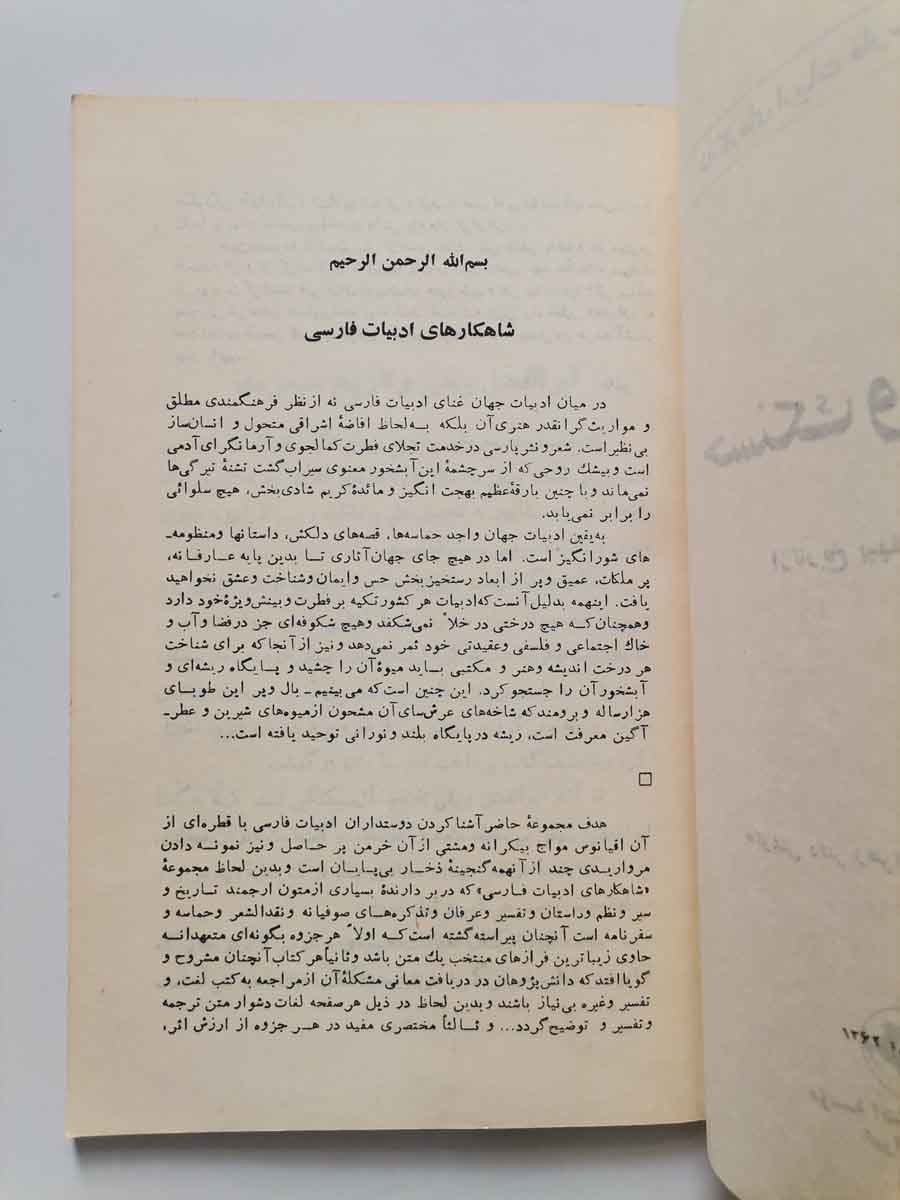 بسم‌الله الرحمن الرحیم
شاهکارهای ادبیات فارسی
در میان ادبیات جهان غنای ادبیات فارسی نه از نظر فرهنگمندی مطلق
و مواریث گرانقدر هنری آن بلکه به‌لحاظ افاضهٔ اشراقی متحول و انسان‌ساز
بی‌نظیر است. شعر و نثر پارسی در خدمت تجلای فطرت کمالجوی و آرمانگرای آدمی
است و بیشك روحی که از سرچشمهٔ این آبشخور معنوی سیراب گشت تشنهٔ تیرگی‌ها
نمی‌ماند و با چنین بارقهٔ عظیم بهجت انگیز و مائدهٔ کریم شادی‌بخش، هیچ سلوائی
را برابر نمی‌یابد.
به‌یقین ادبیات جهان واجد حماسه‌ها، قصه‌های دلکش، داستانها و منظومه‌ـ
های شورانگیز است. اما در هیچ جای جهان آثاری تا بدین پایه عارفانه،
پر ملکات، عمیق و پر از ابعاد رستخیزبخش حس و ایمان و شناخت و عشق نخواهید
یافت. اینهمه بدلیل آنست که ادبیات هر کشور تکیه بر فطرت و بینش ویژهٔ خود دارد
و همچنان‌کـه هیچ درختی در خلاٴ نمی‌شکفد و هیچ شکوفه‌ای جز در فضا و آب و
خاك اجتماعی و فلسفی و عقیدتی خود ثمر نمی‌دهد و نیز از آنجا که برای شناخت
هر درخت اندیشه و هنر و مکتبی بـاید میوهٔ آن را چشید و پـایگاه ریشه‌ای و
آبشخور آن را جستجو کرد. این چنین است که می‌بینیم ـ بال و پر این طوبـای
هزار ساله و برومند که شاخه‌های عرش‌سای آن مشحون از میوه‌های شیرین و عطرـ
آگین معرفت است، ریشه در پایگاه بلند و نورانی توحید یافته است...
□
هدف مجموعهٔ حاضر آشنا کردن دوستداران ادبیات فارسی با قطره‌ای از
آن اقیانوس مواج بیکرانه و مشتی از آن خرمن پر حـاصل و نیز نمونـه دادن
مرواریدی چند از آنهمه گنجینهٔ ذخار بی‌پـایـان است و بدین لحاظ مجموعهٔ
«شاهکارهای ادبیات فـارسی» که در بر دارندهٔ بسیاری از متون ارجمند تـاریخ و
سیر و نظم و داستان و تفسیر و عرفان و تذکره‌هـای صوفیانه و نقدالشعر و حماسه و
سفرنامه است آنچنان پیراسته گشته است کـه اولاً هر جزوه بگونه‌ای متعهدانـه
حاوی زیباترین فرازهای منتخب یك متن باشد و ثانیاً هر کتاب آنچنان مشروح و
گویا افتد که دانش‌پژوهان در دریافت معانی مشکلهٔ آن از مراجعه به کتب لغت، و
تفسیر و غیره بی‌نیاز باشند و بدین لحاظ در ذیل هر صفحه لغات دشوار متن ترجمه
و تفسیر و توضیح گردد... و ثـالثاً مختصری مفید در هـر جزوه از ارزش اثر،
۱۳۶۲